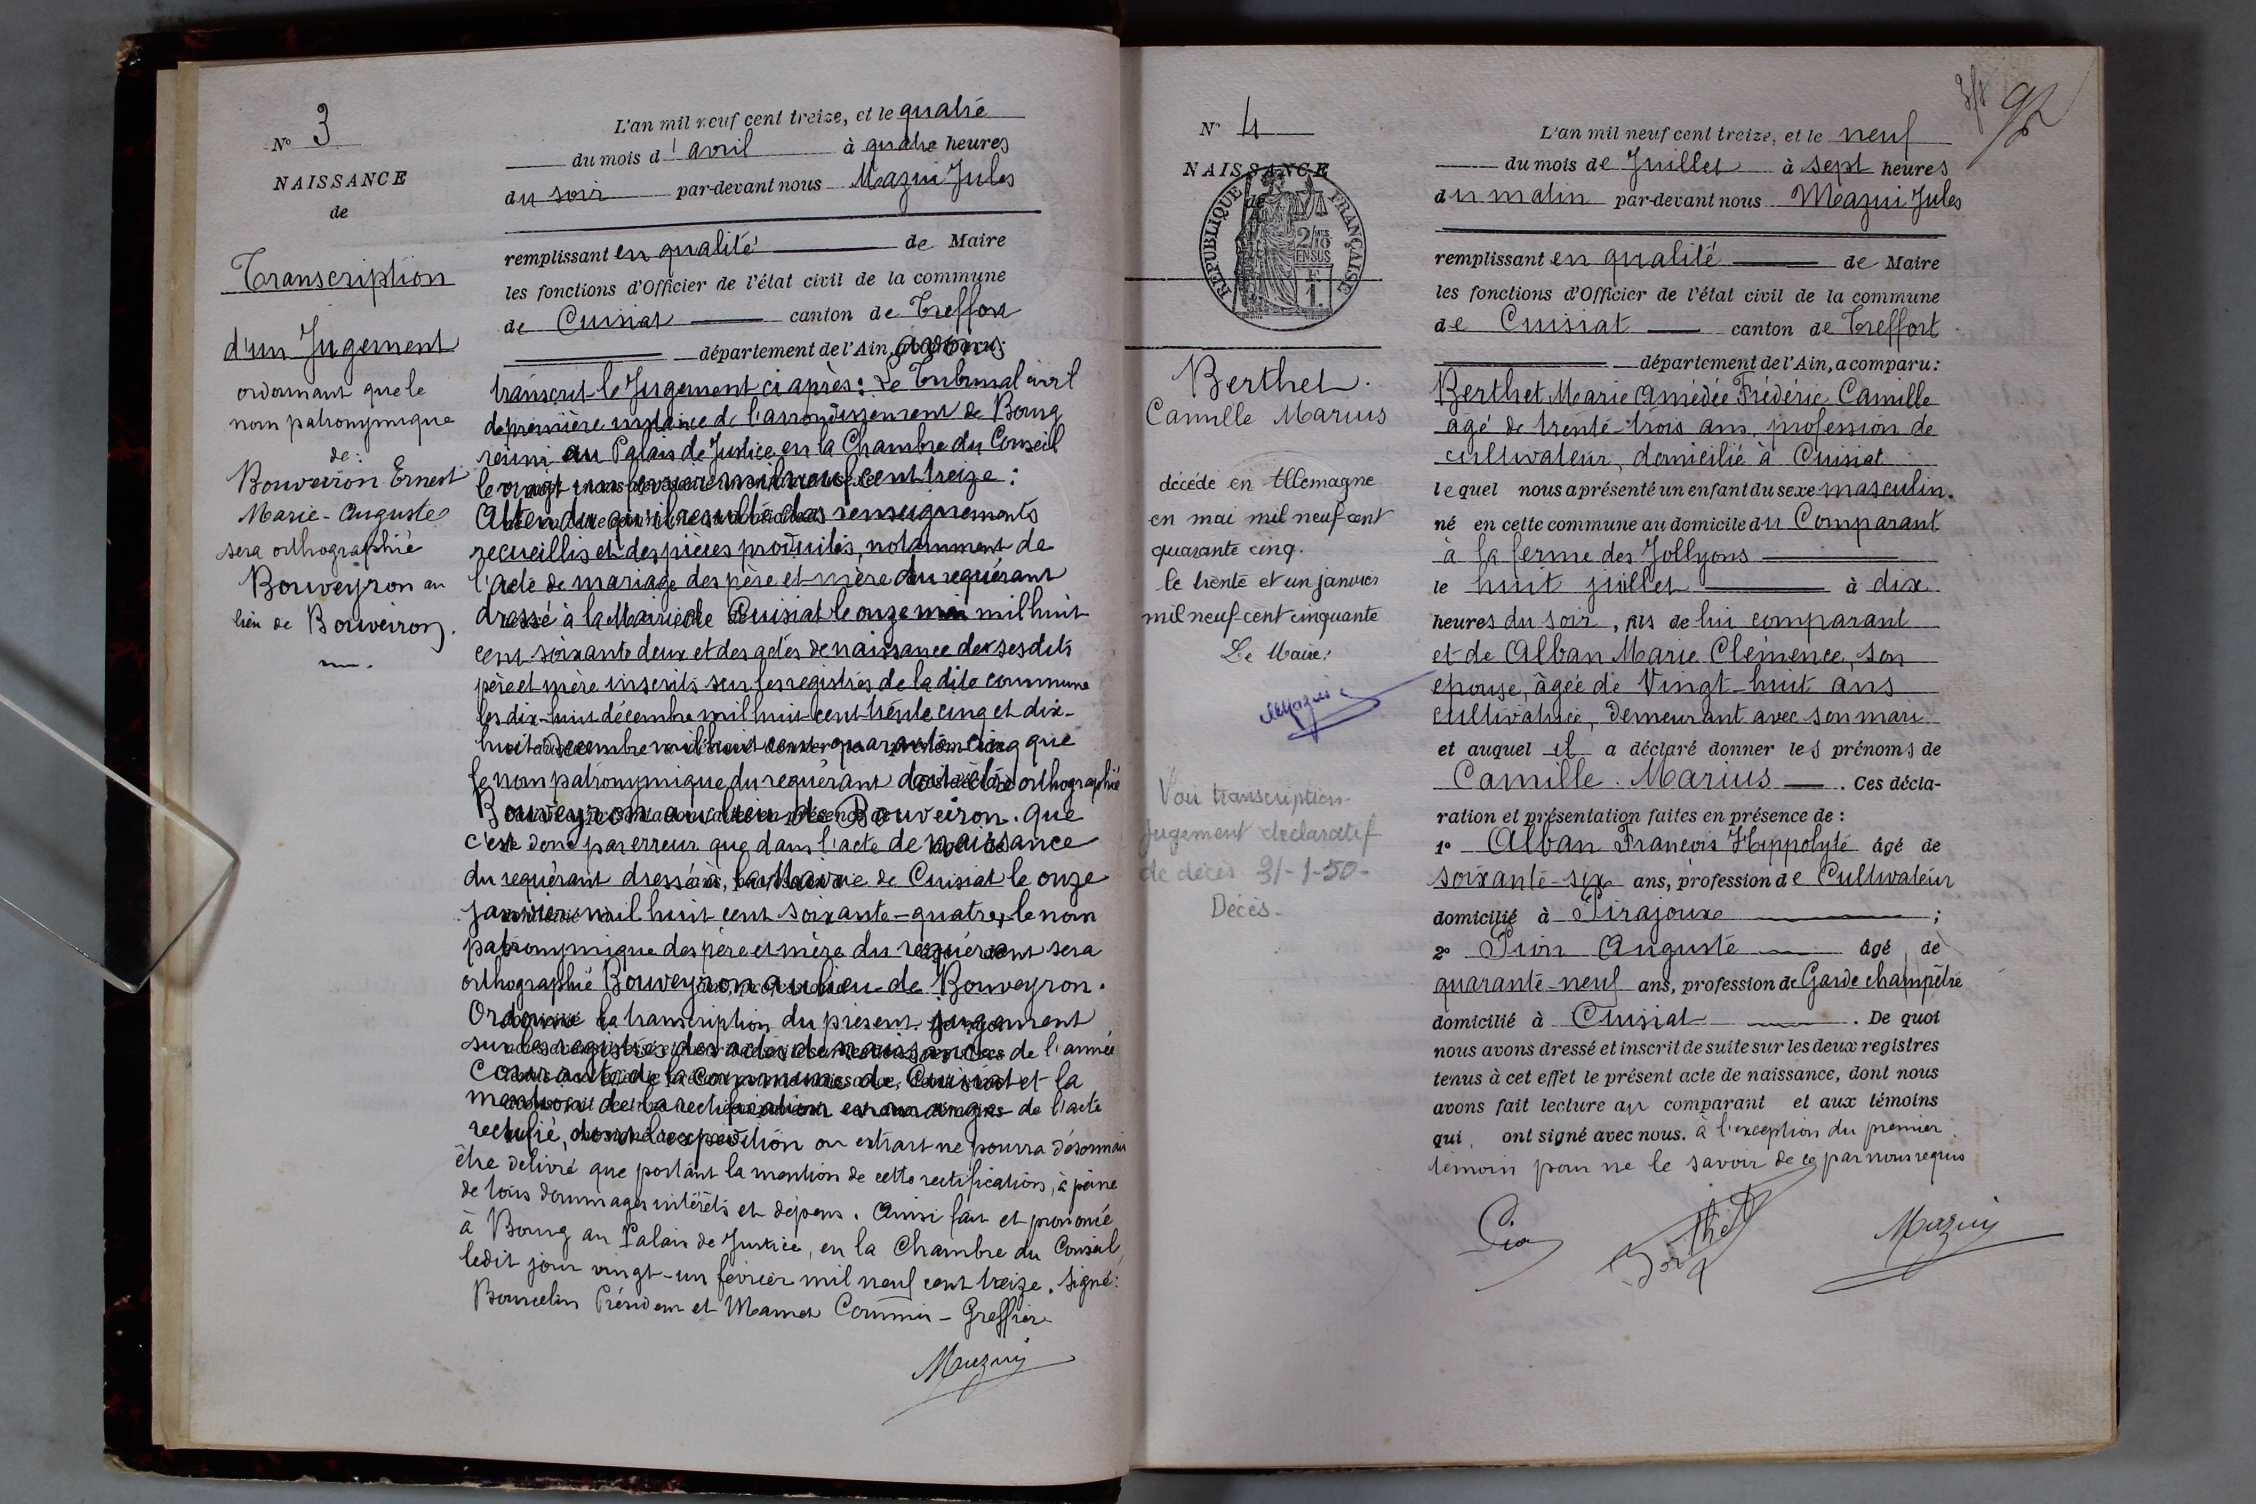 N° 3
NAISSANCE
de
Transcription
d'un Jugement
ordonnant que le
nom patronymique
de :
Bouveiron Ernest
Marie-Auguste
sera orthographié
Bouveyron au
lieu de Bouveiron.
L'an mil neuf cent treize, et le quatre
du mois d'avril à quatre heures
du soir par-devant nous Mazui Jules
remplissant en qualité de Maire
les fonctions d'Officier de l'état civil de la commune
de Cuisiat canton de Treffort
département de l'Ain, avons
transcrit le Jugement ci après : Le Tribunal civil
de première instance de l'arrondissement de Bourg
réuni au Palais de Justice en la Chambre du Conseil
le vingt un février mil neuf cent treize :
Attendu qu'il résulte des renseignements
recueillis et des pièces produites, notamment de
l'acte de mariage des père et mère du requérant
dressé à la Mairie de Cuisiat le onze mai mil huit
cent soixante deux et des actes de naissance de ses dits
père et mère inscrits sur les registres de la dite commune
les dix-huit décembre mil huit cent trente cinq et dix-
huit décembre mil huit cent quarante cinq que
le nom patronymique du requérant doit être orthographié
Bouveyron au lieu de Bouveiron. que
c'est donc par erreur que dans l'acte de naissance
du requérant dressé à la Mairie de Cuisiat le onze
janvier mil huit cent soixante-quatre, le nom
patronymique des père et mère du requérant sera
orthographié Bouveyron au lieu de Bouveyron.
Ordonne la transcription du présent jugement
sur les registres des actes de naissance de l'année
Courante de la Commune de Cuisiat et la
mention de la rectification en marge de l'acte
rectifié, dont l'expédition ou extrait ne pourra désormais
être délivré que portant la mention de cette rectification, à peine
de tous dommages intérêts et dépens. Ainsi fait et prononcé
à Bourg au Palais de Justice, en la Chambre du Conseil,
ledit jour vingt-un février mil neuf cent treize. Signé :
Président et Commis-Greffier
Mazuy
N° 4
NAISSANCE
de
RÉPUBLIQUE FRANÇAISE
2/10 EN SUS
1 F
Berthet.
Camille Marius
décédé en Allemagne
en mai mil neuf-cent
quarante cinq.
le trente et un janvier
mil neuf-cent cinquante
Le Maire :
Voir transcription
Jugement déclaratif
de décès 31-1-50-
Décès-
L'an mil neuf cent treize, et le neuf
du mois de Juillet à sept heures
du matin par-devant nous Mazui Jules
remplissant en qualité de Maire
les fonctions d'Officier de l'état civil de la commune
de Cuisiat canton de Treffort
département de l'Ain, a comparu :
Berthet Marie Amédée Frédéric Camille
agé de trente-trois ans, profession de
cultivateur, domicilié à Cuisiat
lequel nous a présenté un enfant du sexe masculin.
né en cette commune au domicile du Comparant
à la ferme des Jollyons
le huit juillet à dix
heures du soir, fils de lui comparant
et de Alban Marie Clémence, son
épouse, âgée de Vingt-huit ans
cultivatrice, demeurant avec son mari
et auquel il a déclaré donner les prénoms de
Camille. Marius. Ces décla-
ration et présentation faites en présence de :
1° Alban François Hippolyte âgé de
soixante-six ans, profession de Cultivateur
domicilié à Pirajoux ;
2° Pion Auguste âgé de
quarante-neuf ans, profession de Garde champêtre
domicilié à Cuisiat. De quoi
nous avons dressé et inscrit de suite sur les deux registres
tenus à cet effet le présent acte de naissance, dont nous
avons fait lecture au comparant et aux témoins
qui ont signé avec nous. à l'exception du premier
témoin pour ne le savoir de ce par nous requis
Pion Berthet Mazuy